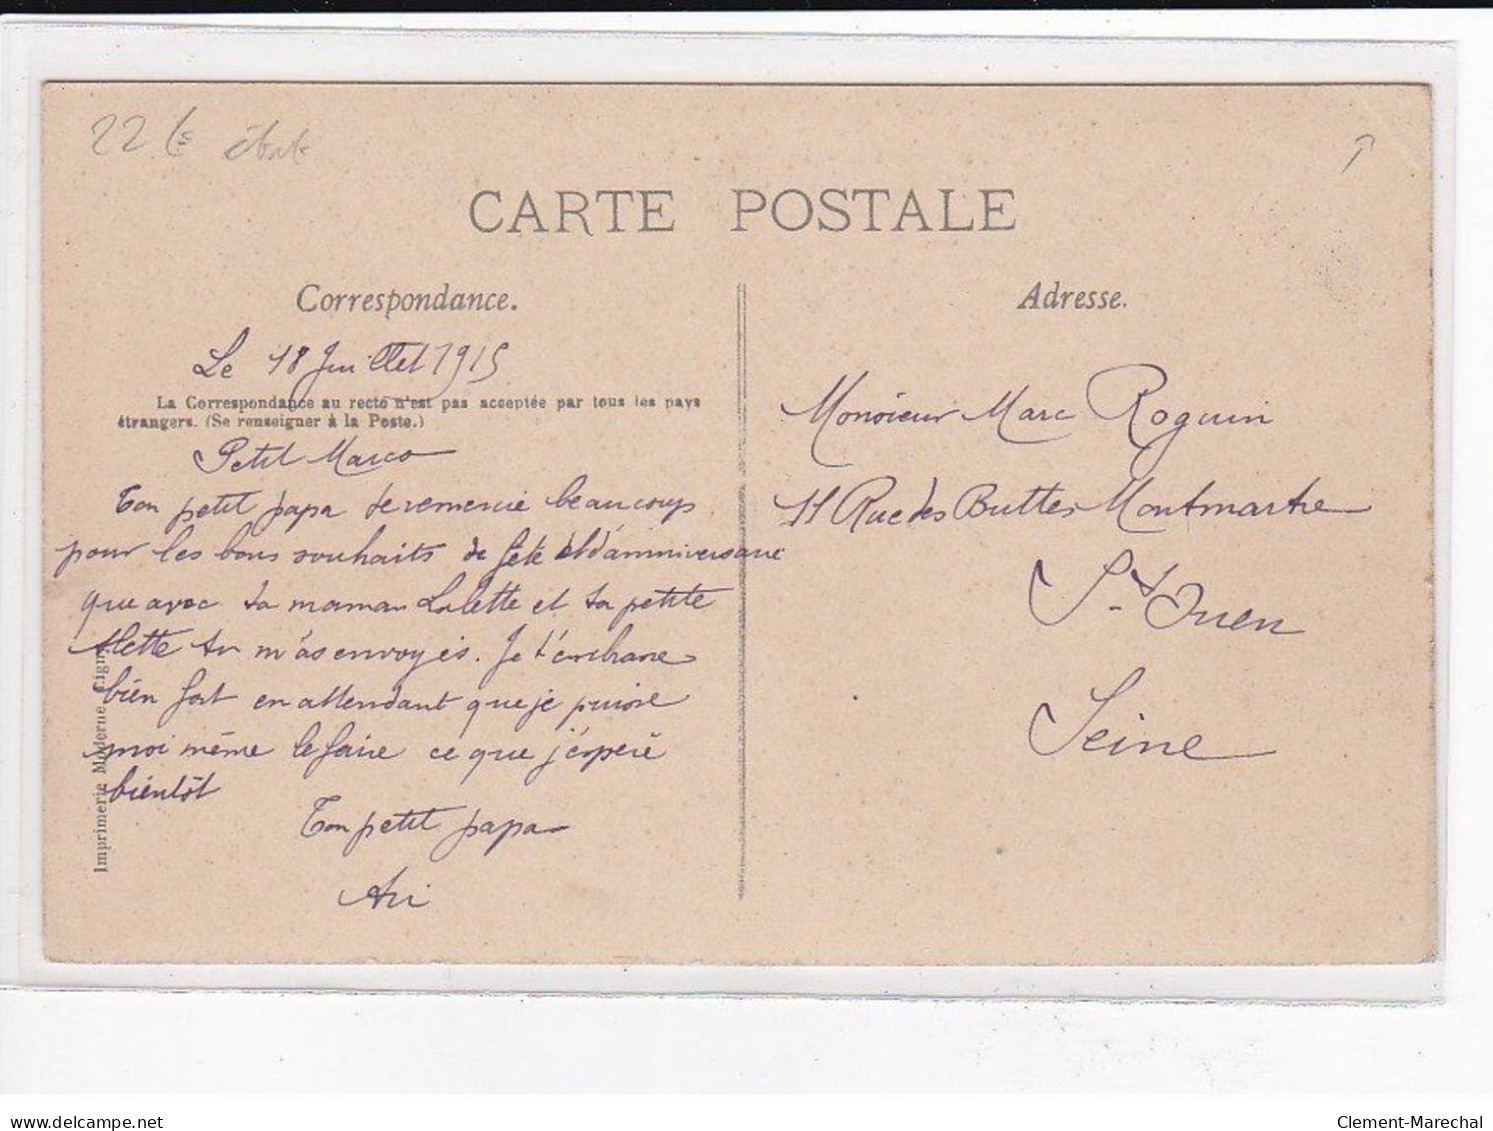 22
CARTE POSTALE
Correspondance.
Le 18 Juillet 1915
La Correspondance au recto n'est pas acceptée par tous les pays
étrangers. (Se renseigner à la Poste.)
Petit Marco
Ton petit papa te remercie beaucoup
pour les bons souhaits de fête et d'anniversaire
que avec ta maman Lolette et ta petite
tu m'as envoyés. Je t'embrasse
bien fort en attendant que je puisse
moi même le faire ce que j'espère
bientôt
Ton petit papa
Imprimerie Moderne
Adresse.
Monsieur Marc Roguin
11 Rue des Buttes Montmartre
St Ouen
Seine
delcampe.net
Clement-Marechal